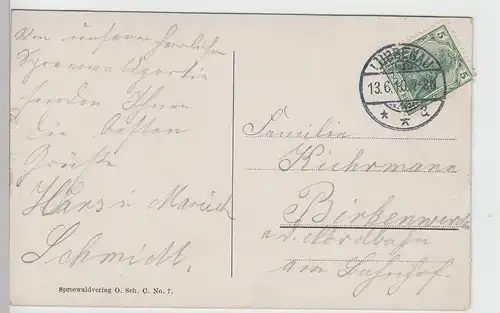 Von unserer herrlichen
Spreewaldpartie
senden Ihnen
die besten
Grüße
Hans u
Schmidt.
Spreewaldverlag O. Sch. C. No. 7.
LÜBBENAU
13.6.10.
5
5
Familie
Kuhrmann
Birkenwerder
a. d. Nordbahn
am Bahnhof.